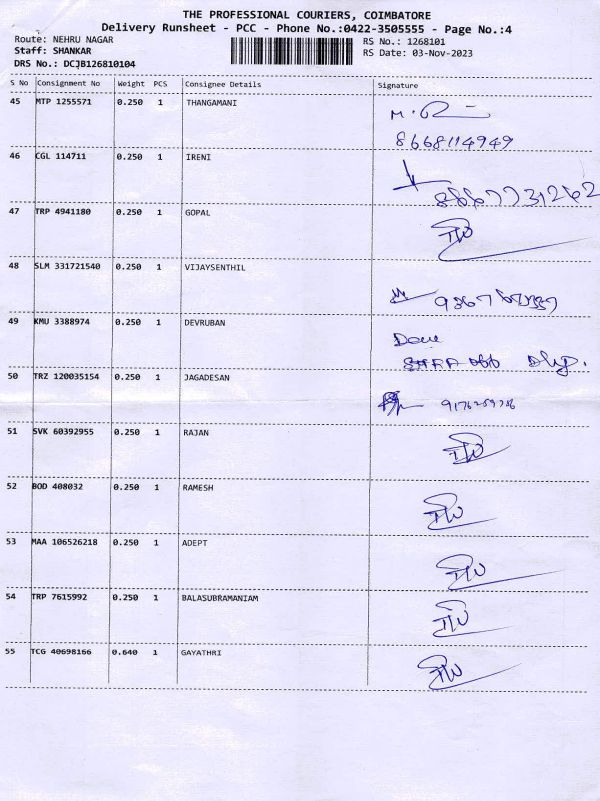 THE PROFESSIONAL COURIERS, COIMBATORE
Delivery Runsheet - PCC - Phone No.:0422-3505555 - Page No.:4
Route: NEHRU NAGAR RS No.: 1268101
Staff: SHANKAR RS Date: 03-Nov-2023
DRS No.: DCJB126810104
S No Consignment No Weight PCS Consignee Details Signature
45 MTP 1255571 0.250 1 THANGAMANI
8668114949
46 CGL 114711 0.250 1 IRENI
8667731262
47 TRP 4941180 0.250 1 GOPAL
48 SLM 331721540 0.250 1 VIJAYSENTHIL
49 KMU 3388974 0.250 1 DEVRUBAN
50 TRZ 120035154 0.250 1 JAGADESAN
51 SVK 60392955 0.250 1 RAJAN
52 BOD 408032 0.250 1 RAMESH
53 MAA 106526218 0.250 1 ADEPT
54 TRP 7615992 0.250 1 BALASUBRAMANIAM
55 TCG 40698166 0.640 1 GAYATHRI